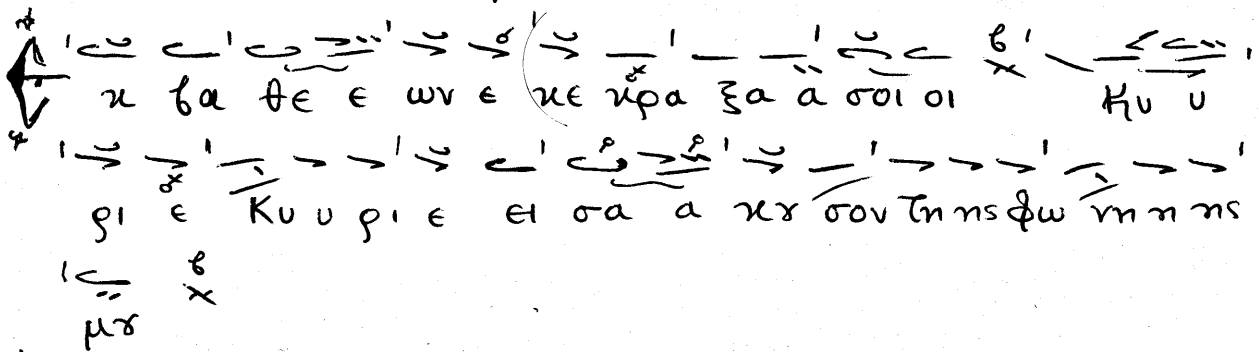 κ βα θε ε ων ε κε κρα ξα α σοι οι Κυ υ
ρι ε Κυ υ ρι ε ει σα α κȣ σον τη ης φω νη η ης
μȣ